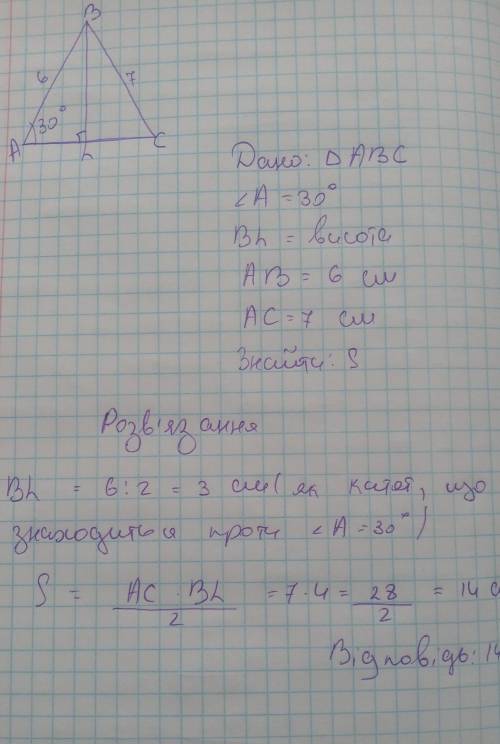 B
6
7
30°
A
h
C
Дано: △ABC
∠A = 30°
Bh = висота
AB = 6 см
AC = 7 см
Знайти: S
Розв'язання
Bh = 6:2 = 3 см (як катет, що
знаходиться проти ∠A = 30°)
S = AC · Bh / 2 = 7·4 = 28 / 2 = 14 с
Відповідь: 14